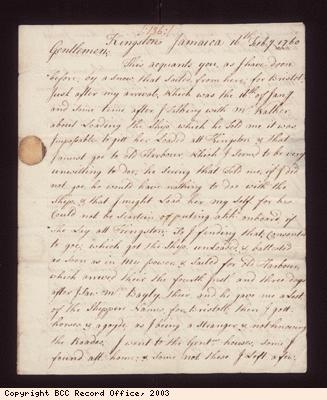 [186]
Kingston Jamaica 16th Feby 1760
Gentlemen
This acquants you, as I have done
before, by a snow that Sailed from here, for Bristol
Just after my arrival, which was the 16th of Jany
and Some time after I talking with Mr Walker
about Loading the Ship, which he told me it was
Imposable to gitt her Loaded att Kingston & that
I must goe to Old Harbour, which I Seem'd to be very
unwilling to doe, he Seeing that Told me, if I did
not goe, he would have nothing to doe with the
Ship, & that I might Load her my Self for hee
Could not be Scertain of puting abh onboard if
She Lay att Kingston. So I finding that, Consented
to goe, which got the Ship unloaded, & ballasted
as Soon as in my power, & Sailed for Old Harbour,
which arrived their the fourth Inst and three days
after I saw Mr Bayly their and he give me a List
of the Shippers Names, for Bristoll, then I gott
horses, & a guyde, as I being a stranger, & not knowing
the Roades. I went to the Gentms houses, some I
found att home, & some not those I Left a few
Copyright BCC Record Office, 2003